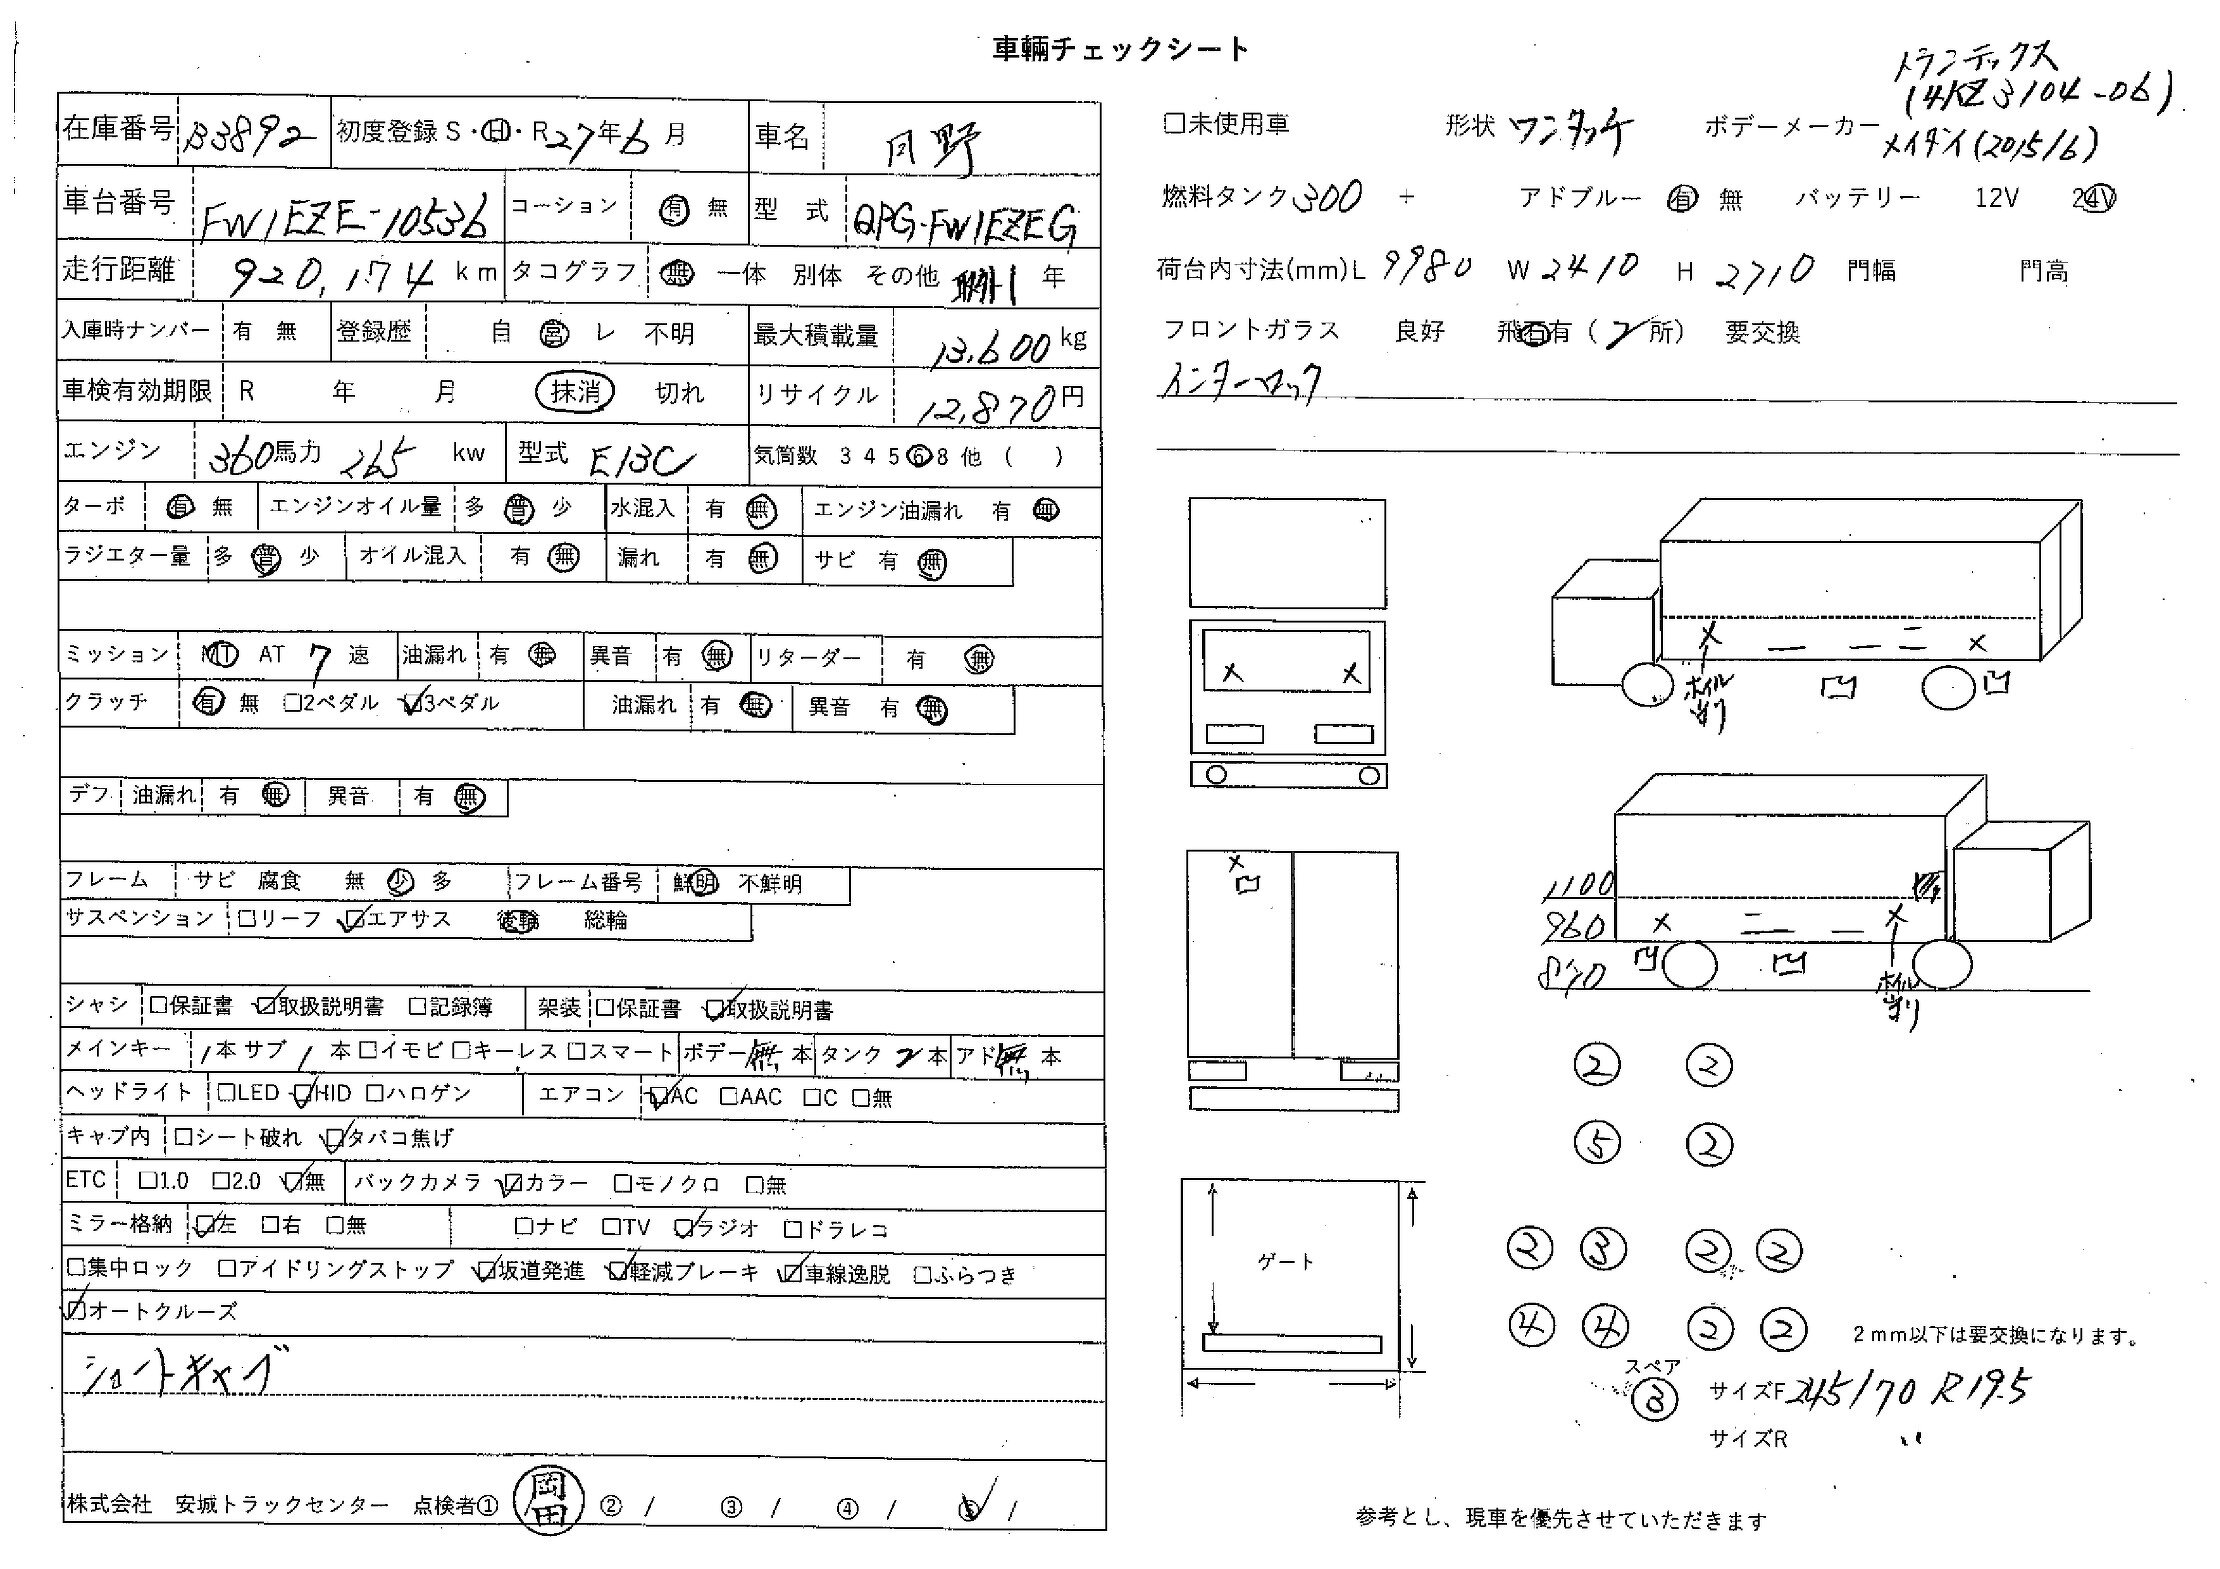 車輛チェックシート
在庫番号 B3892 初度登録 S・H・R 27年 6月 車名 日野
車台番号 FW1EZE-10536 コーション 有 無 型式 QPG-FW1EZEG
走行距離 920,174 km タコグラフ 無 一体 別体 その他 年
入庫時ナンバー 有 無 登録歴 自 営 レ 不明 最大積載量 13,600 kg
車検有効期限 R 年 月 抹消 切れ リサイクル 12,870円
エンジン 360馬力 265 kw 型式 E13C 気筒数 3 4 5 6 8 他 ( )
ターボ 有 無 エンジンオイル量 多 普 少 水混入 有 無 エンジン油漏れ 有 無
ラジエター量 多 普 少 オイル混入 有 無 漏れ 有 無 サビ 有 無
ミッション MT AT 7 速 油漏れ 有 無 異音 有 無 リターダー 有 無
クラッチ 有 無 □2ペダル ☑3ペダル 油漏れ 有 無 異音 有 無
デフ 油漏れ 有 無 異音 有 無
フレーム サビ 腐食 無 少 多 フレーム番号 鮮明 不鮮明
サスペンション □リーフ ☑エアサス 後輪 総輪
シャシ □保証書 ☑取扱説明書 □記録簿 架装 □保証書 ☑取扱説明書
メインキー 1本 サブ 1本 □イモビ □キーレス □スマート ボデー 無 本 タンク 2 本 アド 無 本
ヘッドライト □LED ☑HID □ハロゲン エアコン ☑AC □AAC □C □無
キャブ内 □シート破れ ☑タバコ焦げ
ETC □1.0 □2.0 ☑無 バックカメラ ☑カラー □モノクロ □無
ミラー格納 ☑左 □右 □無 □ナビ □TV ☑ラジオ □ドラレコ
□集中ロック □アイドリングストップ ☑坂道発進 ☑軽減ブレーキ ☑車線逸脱 □ふらつき
☑オートクルーズ
ショートキャブ
株式会社 安城トラックセンター 点検者① 岡田 ② / ③ / ④ / ⑤ /
トランテックス
(4KZ3104-06)
□未使用車 形状 ワンタッチ ボデーメーカー メイダイ(2015/6)
燃料タンク 300 + アドブルー 有 無 バッテリー 12V 24V
荷台内寸法(mm)L 9980 W 2410 H 2710 門幅 門高
フロントガラス 良好 飛石有 ( 2 所) 要交換
インターロック
ホイル
1100
960
870
ホイル
② ②
⑤ ②
② ③ ② ②
④ ④ ② ②
ゲート
2mm以下は要交換になります。
スペア
③ サイズF 245/70 R19.5
サイズR 〃
参考とし、現車を優先させていただきます